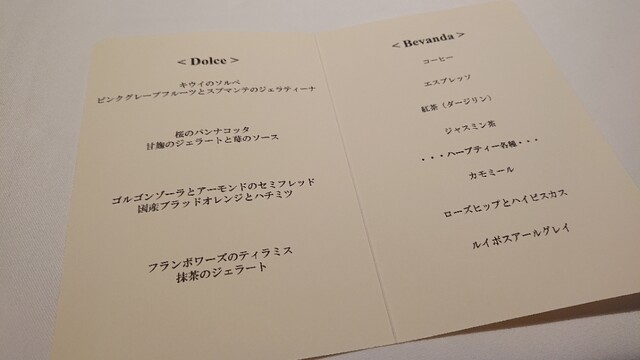 < Dolce >
キウイのソルベ
ピンクグレープフルーツとスプマンテのジェラティーナ
桜のパンナコッタ
甘麹のジェラートと苺のソース
ゴルゴンゾーラとアーモンドのセミフレッド
国産ブラッドオレンジとハチミツ
フランボワーズのティラミス
抹茶のジェラート
< Bevanda >
コーヒー
エスプレッソ
紅茶（ダージリン）
ジャスミン茶
・・・ハーブティー各種・・・
カモミール
ローズヒップとハイビスカス
ルイボスアールグレイ